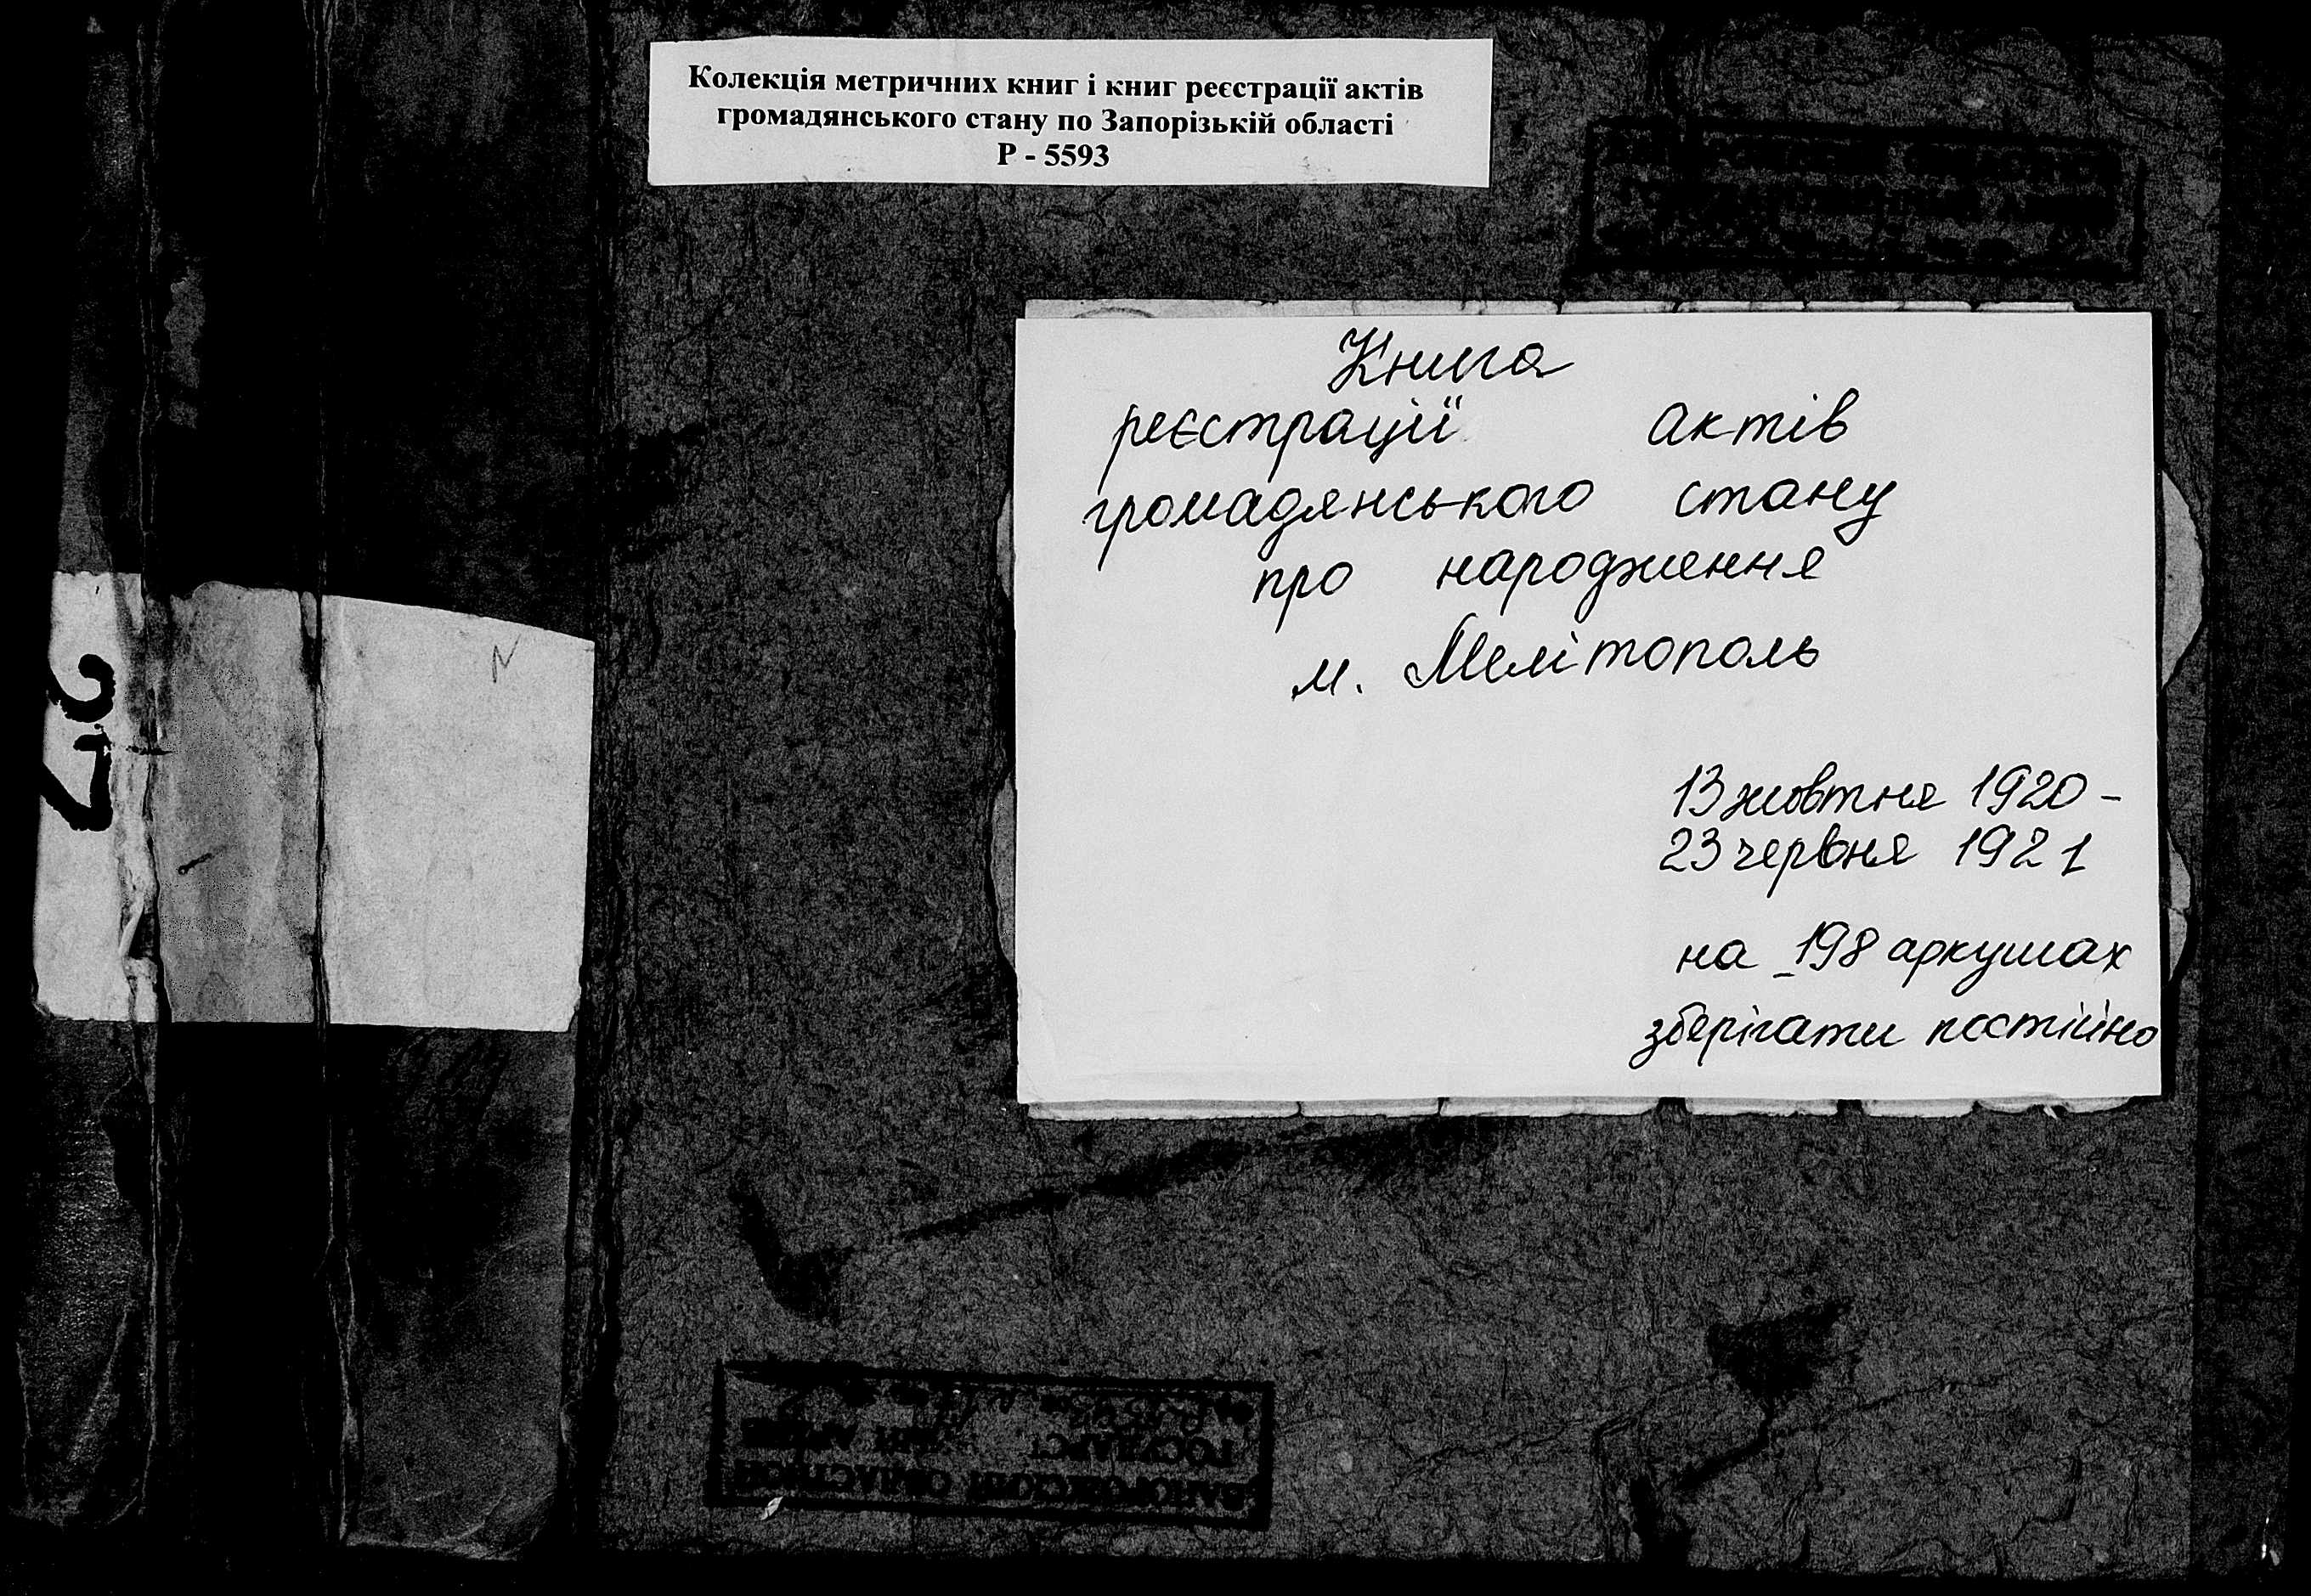 Колекція метричних книг і книг реєстрації актів
громадянського стану по Запорізькій області
Р - 5593
Книга
реєстрації актів
громадянського стану
про народження
м. Мелітополь
13 жовтня 1920 -
23 червня 1921
на 198 аркушах
зберігати постійно
27